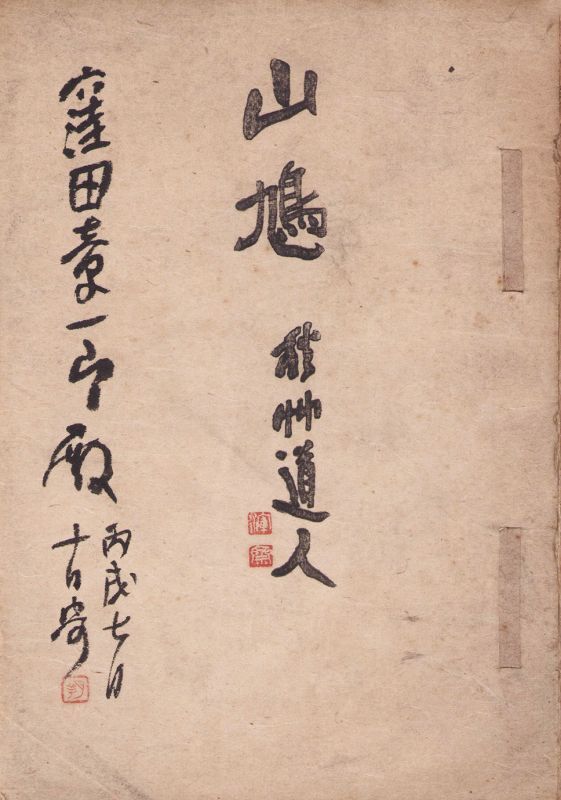 山鳩
秋艸道人
渾
齋
窪田章一郎殿
丙戌七月
十日寄